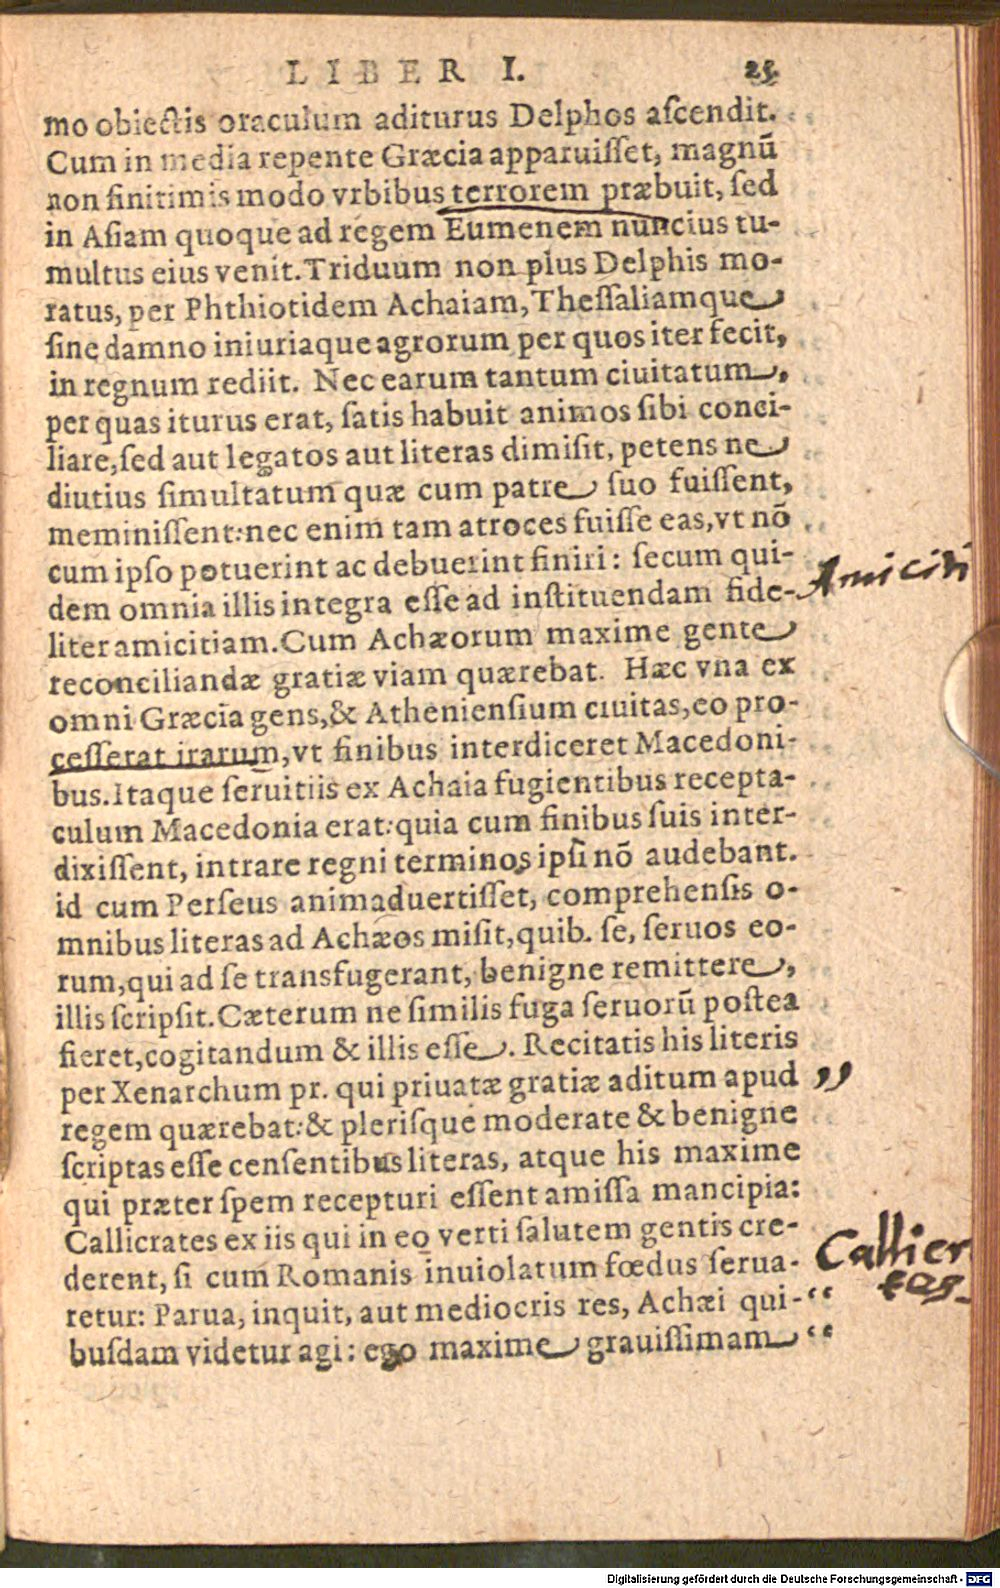 LIBER I. 25.
mo obiectis oraculum aditurus Delphos aſcendit.
Cum in media repente Græcia apparuiſſet, magnũ
non finitimis modo vrbibus terrorem præbuit, ſed
in Aſiam quoque ad regem Eumenem nuncius tu-
multus eius venit. Triduum non plus Delphis mo-
ratus, per Phthiotidem Achaiam, Theſſaliamque
ſine damno iniuriaque agrorum per quos iter fecit,
in regnum rediit. Nec earum tantum ciuitatum,
per quas iturus erat, ſatis habuit animos ſibi conci-
liare, ſed aut legatos aut literas dimiſit, petens ne
diutius ſimultatum quæ cum patre ſuo fuiſſent,
meminiſſent: nec enim tam atroces fuiſſe eas, vt nõ
cum ipſo potuerint ac debuerint finiri: ſecum qui-
dem omnia illis integra eſſe ad inſtituendam fide-
Amiciti
liter amicitiam. Cum Achæorum maxime gente
reconciliandæ gratiæ viam quærebat. Hæc vna ex
omni Græcia gens, & Athenienſium ciuitas, eo pro-
ceſſerat irarum, vt finibus interdiceret Macedoni-
bus. Itaque ſeruitiis ex Achaia fugientibus recepta-
culum Macedonia erat: quia cum finibus ſuis inter-
dixiſſent, intrare regni terminos ipſi nõ audebant.
id cum Perſeus animaduertiſſet, comprehenſis o-
mnibus literas ad Achæos miſit, quib. ſe, ſeruos eo-
rum, qui ad ſe transfugerant, benigne remittere,
illis ſcripſit. Cæterum ne ſimilis fuga ſeruorũ poſtea
fieret, cogitandum & illis eſſe. Recitatis his literis
per Xenarchum pr. qui priuatæ gratiæ aditum apud ,,
regem quærebat: & pleriſque moderate & benigne
ſcriptas eſſe cenſentibus literas, atque his maxime
qui præter ſpem recepturi eſſent amiſſa mancipia:
Callicrates ex iis qui in eo verti ſalutem gentis cre-
Callicr
derent, ſi cum Romanis inuiolatum fœdus ſerua-
retur: Parua, inquit, aut mediocris res, Achæi qui- “
buſdam videtur agi: ego maxime grauiſſimam “
Digitalisierung gefördert durch die Deutsche Forschungsgemeinschaft - DFG